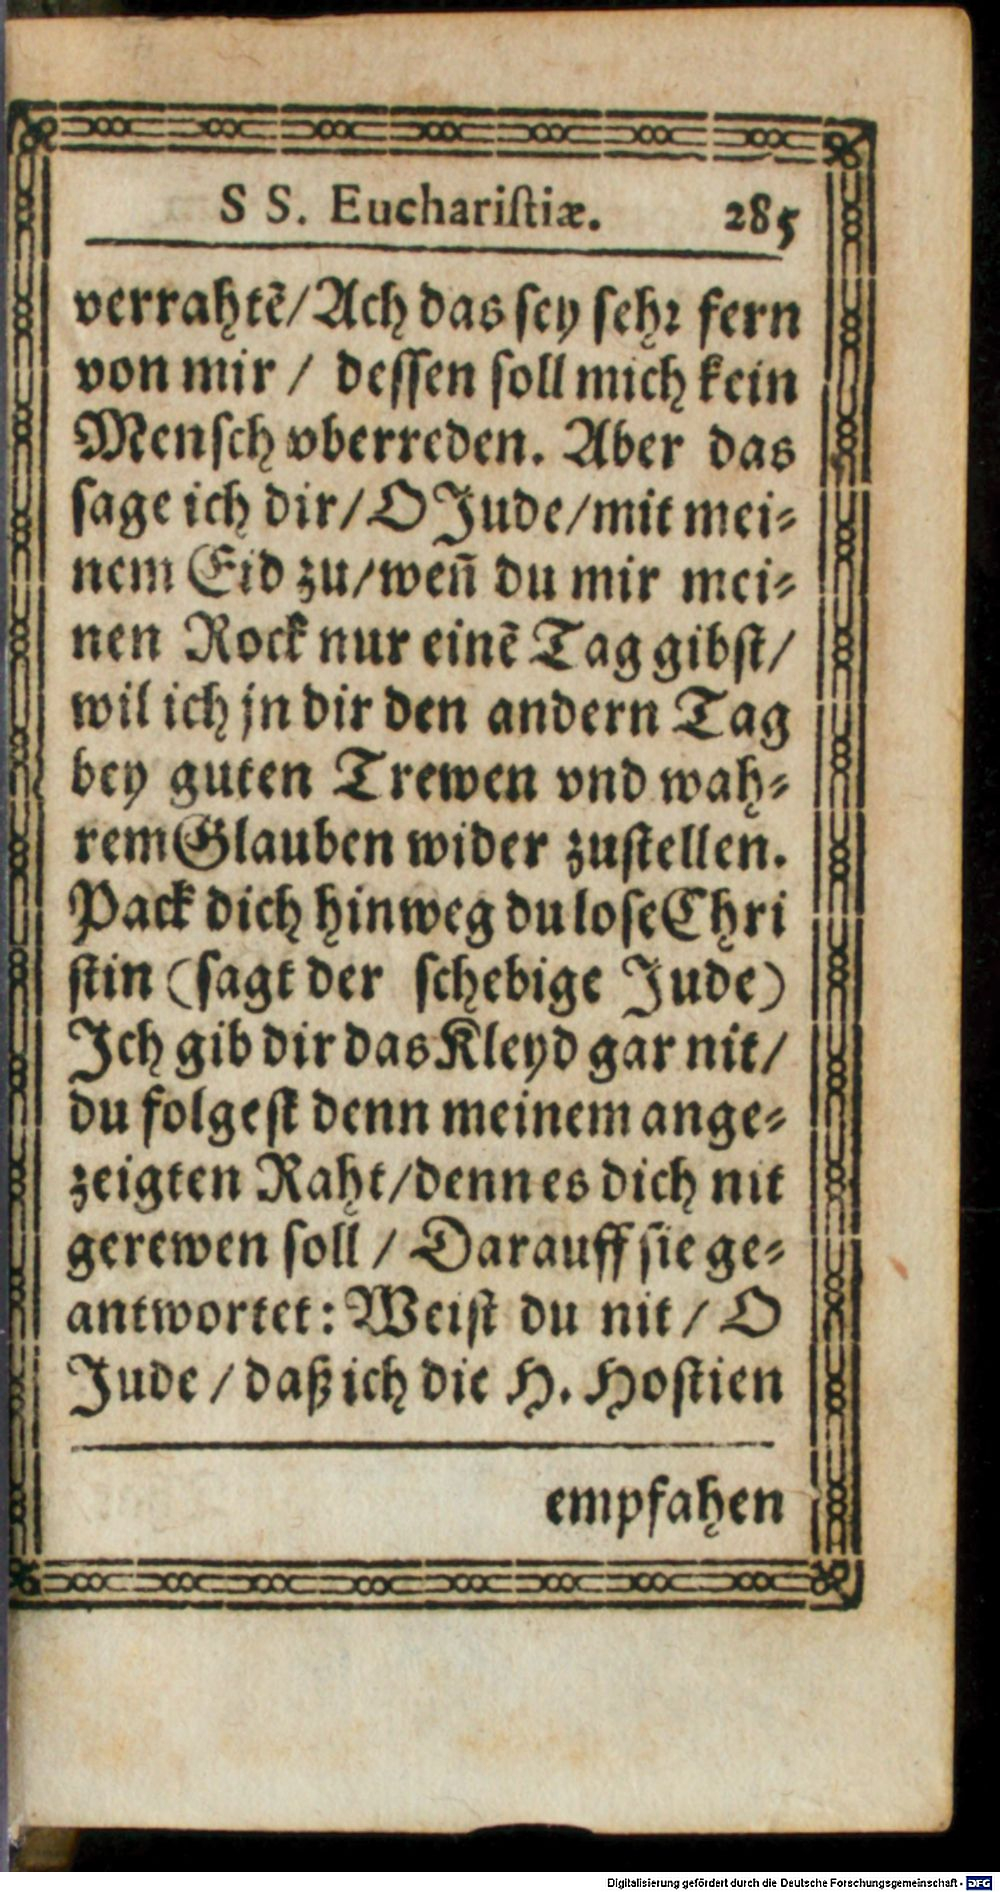 S S. Euchariſtiæ. 285
verrahtẽ/Ach das ſey ſehꝛ fern
von mir / deſſen ſoll mich kein
Menſch vberreden. Aber das
ſage ich dir/O Jude/mit mei⸗
nem Eid zu/weñ du mir mei⸗
nen Rock nur einẽ Tag gibſt/
wil ich jn dir den andern Tag
bey guten Trewen vnd wah⸗
rem Glauben wider zuſtellen.
Pack dich hinweg du loſe Chri
ſtin (ſagt der ſchebige Jude)
Ich gib dir das Kleyd gar nit/
du folgeſt denn meinem ange⸗
zeigten Raht/denn es dich nit
gerewen ſoll / Darauff ſie ge⸗
antwortet: Weiſt du nit / O
Jude / daß ich die H. Hoſtien
empfahen
Digitalisierung gefördert durch die Deutsche Forschungsgemeinschaft - DFG